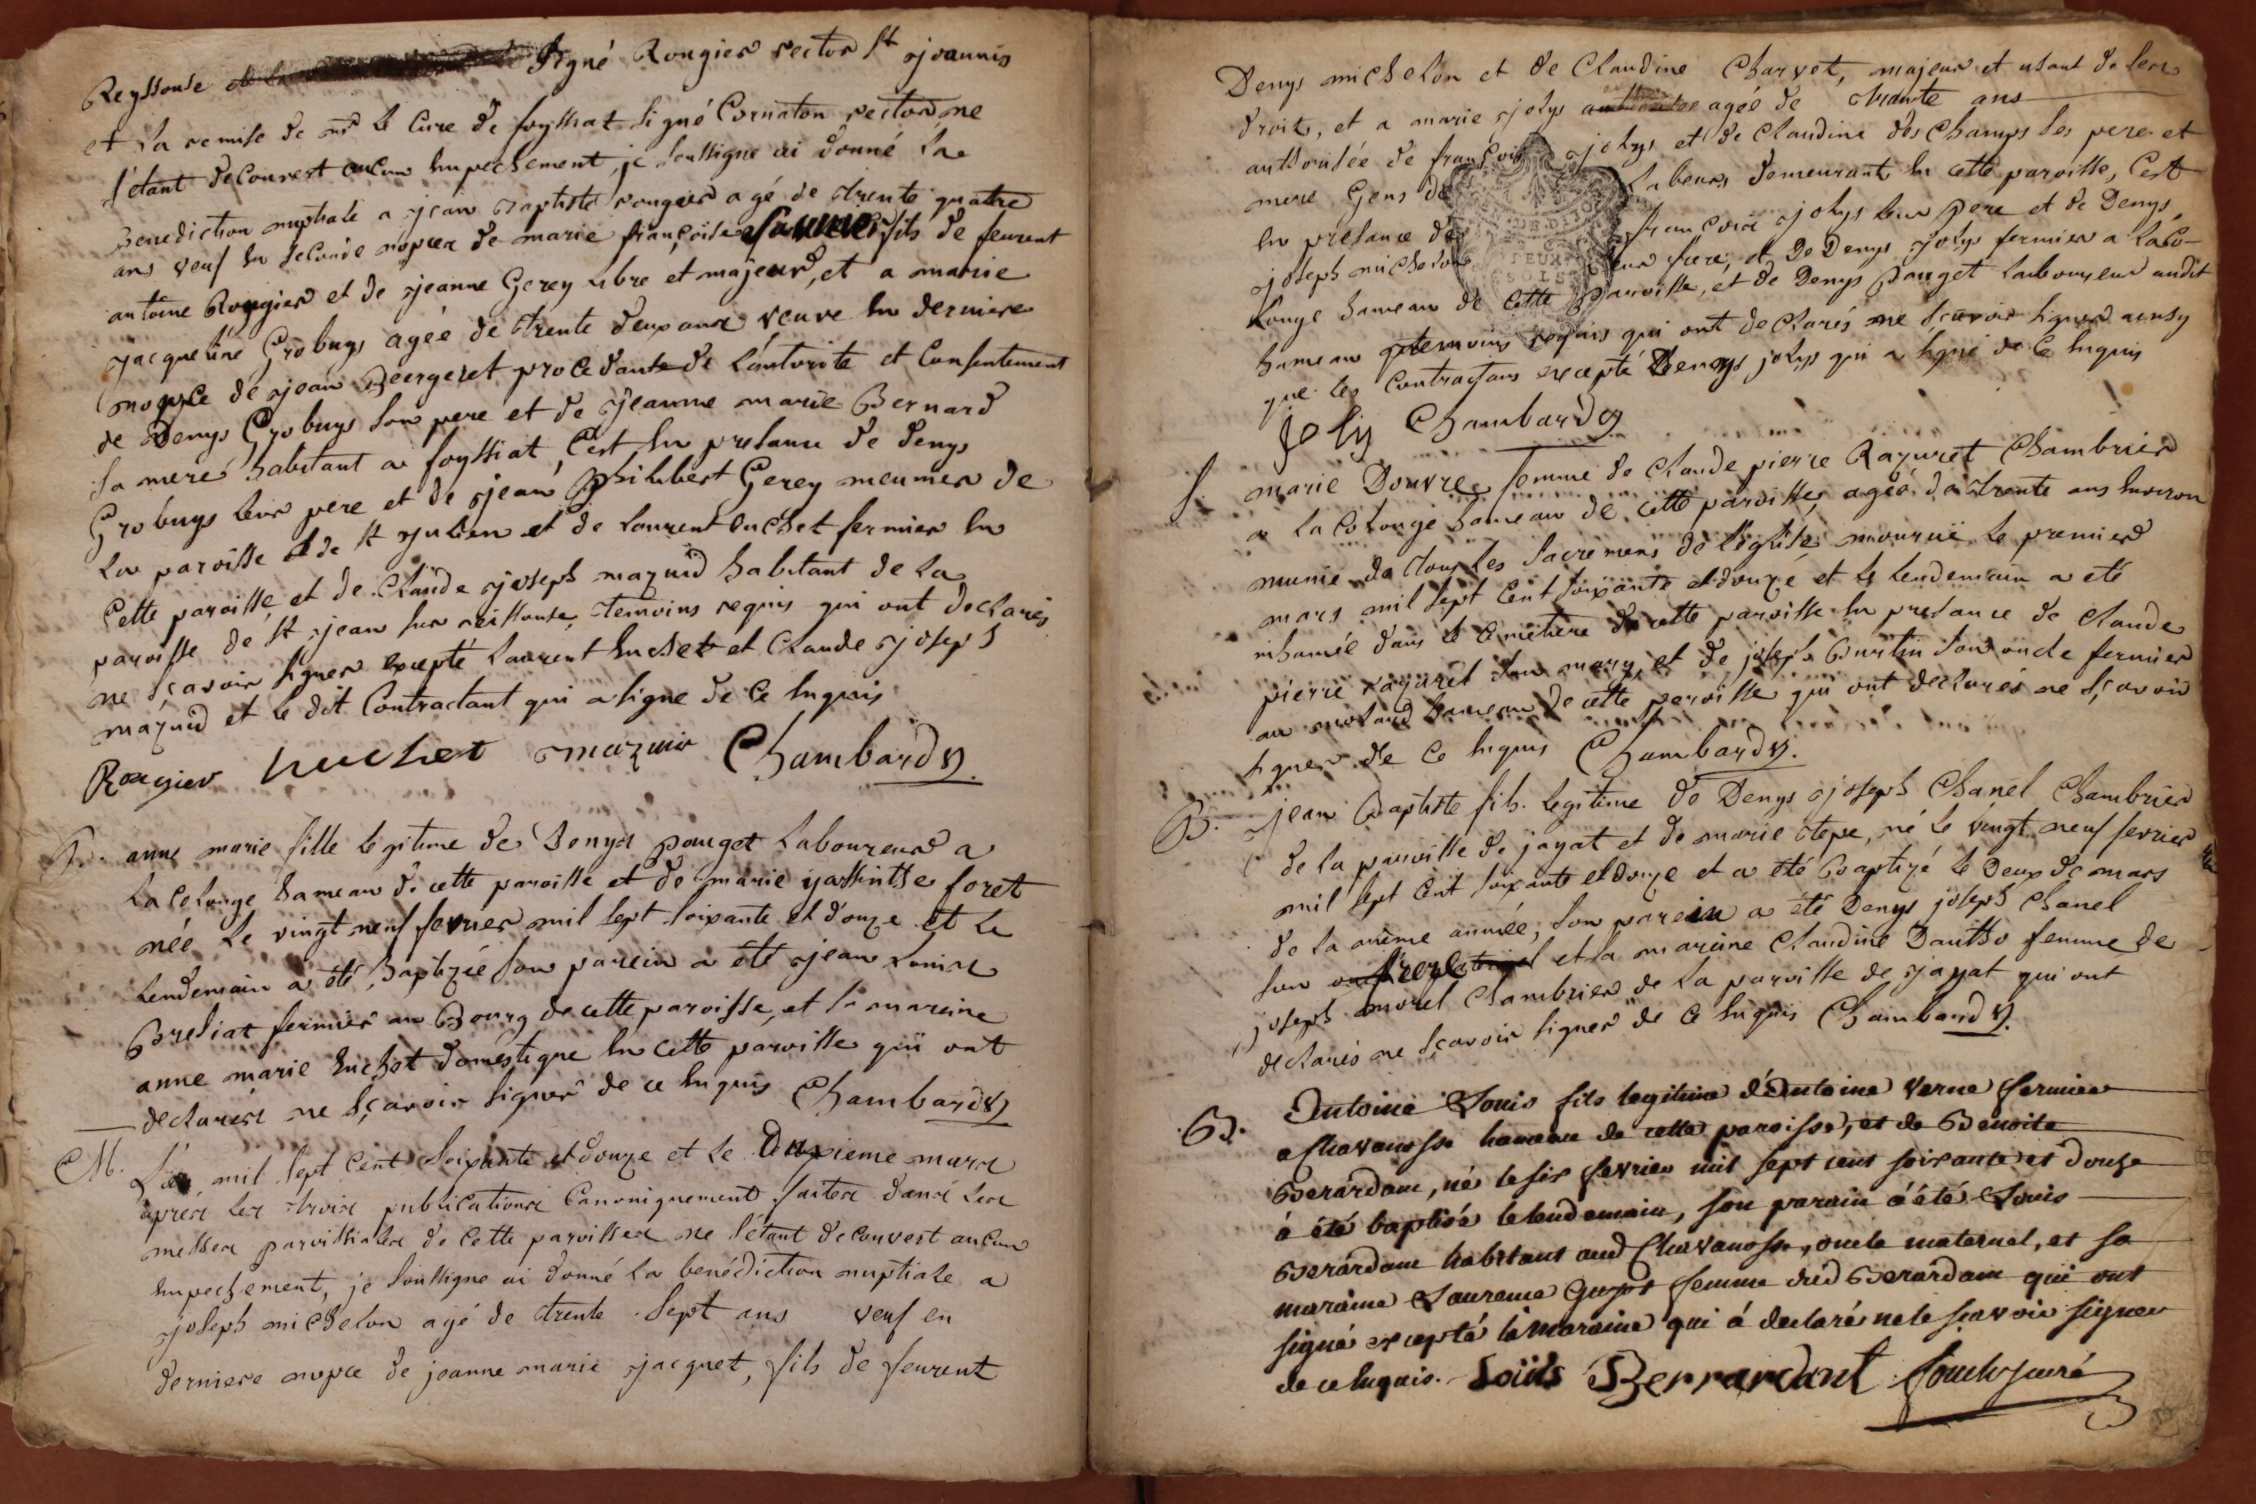 Reyssouse Signé Rougier rector St Sjoannis
et la remise de mr le Curé de foyssiat signé Cornaton rector ne
s'étant decouvert aucun Empechement, je soussigné ai donné la
Benediction nuptiale a sjean Baptiste rougier agé de trente quatre
ans veuf En seconde nopces de marie françoise fils de feu
antoine Rougier et de sjeanne Gerey libre et majeur, et a marie
sjacqueline Grobuys agée de trente deux ans veuve En derniere
nopce de sjean Bergeret procedante de L'autorité et Consentement
de Denys Grobuys son pere et de sjeanne marie Bernard
sa mere habitant a foyssiat, C'est En presance de denys
Grobuys leur pere et de sjean philibert Gerey meunier de
La paroisse de St sjulien et de Laurent huchet fermier En
Cette paroisse, et de Claude sjoseph mazuid habitant de La
paroisse de St sjean sur reissouse, temoins requis qui ont declarés
ne sçavoir signer excepté Laurent huchet et Claude sjoseph
mazuid et le dit Contractant qui a signe de Ce Enquis
Rougier huchet mazuir Chambard
B. anne marie fille legitime de Denys pouget Laboureur a
La Colonge hameau de cette paroisse et de marie yassinthe foret
née le vingt neuf fevrier mil sept soixante et douze et le
Lendemain a été Baptizée son parein a été sjean Louis
Bresiat fermier au Bourg de cette paroisse, et sa mareine
anne marie huchet domestique En cette paroisse qui ont
declarés ne sçavoir signer de ce Enquis Chambard
M. L'an mil sept Cent soixante et douze et le deuxieme mars
apres les trois publications Canoniquement faites dans les
messes paroissiales de cette paroisse ne s'étant decouvert aucun
Empechement, je soussigne ai donné la benédiction nuptiale a
sjoseph michelon agé de trente sept ans veuf en
derniere nopce de jeanne marie sjacquet, fils de feu
Denys michelon et de Claudine Charvet, majeur et usant de ses
droits, et a marie sjolys agée de trante ans
authorisée de françois sjolys et de Claudine des Champs ses pere et
mere Gens de Labeurs demeurants En cette paroisse, C'est
En presance de françois sjolys leur pere et de Denys
sjoseph michelon leur frere, et De Denys sjolys fermier a Laco-
Longe hameau de Cette Paroisse, et de Denys Pouget Laboureur audit
hameau temoins requis qui ont declarés ne sçavoir signer ainsy
que les Contractans excepté Denys jolys qui a signé de Ce Enquis
joly Chambard
S. marie Douvre femme de Claude pierre Razuret Chambrier
a La Colonge hameau de cette paroisse, agée de trente ans Environ
munie de tous les sacremens de L'église mourut le premier
mars mil sept Cent soixante et douze et le lendemain a été
inhumée dans le Cimetiere de cette paroisse En presance de Claude
pierre razuret son mary, et de joseph Burtin son oncle fermier
au hameau de cette paroisse qui ont declarés ne sçavoir
signer de Ce Enquis Chambard
B. sjean Baptiste fils legitime de Denys sjoseph Chanel Chambrier
de la paroisse de jayat et de marie tepe, né le vingt neuf fevrier
mil sept Cent soixante et douze et a été Baptizé le Deux de mars
de la même année, son parein a été Denys joseph Chanel
son et sa mareine Claudine femme de
joseph morel Chambrier de La paroisse de sjayat qui ont
declarés ne sçavoir signer de Ce Enquis Chambard
B. Antoine Louis fils legitime d'Antoine Verne fermier
a Chavanosse hameau de cette paroisse, et de Benoite
Berardam, né le six fevrier mil sept cent soixante et douze
à été baptisé le lendemain, son parain à été Louis
Berardam habitant aud Chavanosse, oncle maternel, et sa
maraine Laurence femme dud Berardam qui ont
signé excepté la maraine qui à declaré ne le sçavoir signer
de ce Enquis. Loüis Berrardant curé